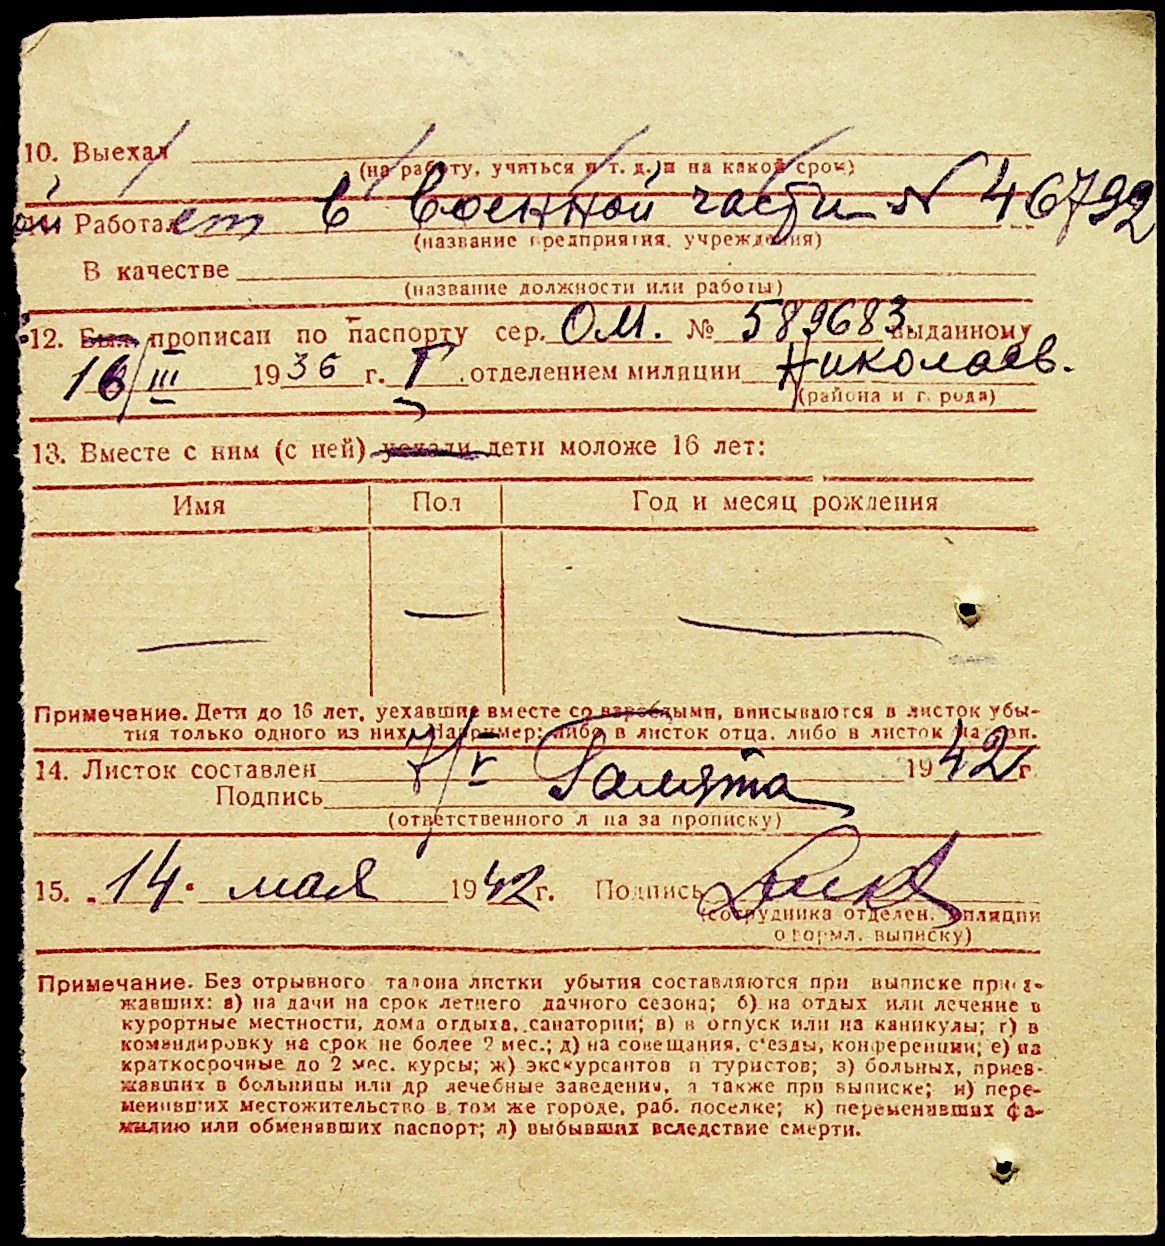 10. Выехал
(на работу, учиться и т. д. и на какой срок)
Работает в военной части N 46792
(название предприятия, учреждения)
В качестве
(название должности или работы)
12. Был прописан по паспорту сер. ОМ. № 589683 выданному
16/III 1936 г. I отделением милиции Николаев.
(района и города)
13. Вместе с ним (с ней) уехали дети моложе 16 лет:
Имя Пол Год и месяц рождения
— — —
Примечание. Дети до 16 лет, уехавшие вместе со взрослыми, вписываются в листок убы-
тия только одного из них. Например: либо в листок отца, либо в листок
14. Листок составлен 7/V 1942 г.
Подпись
(ответственного лица за прописку)
15. 14. мая 1942 г. Подпись
(сотрудника отделен. милиции
оформл. выписку)
Примечание. Без отрывного талона листки убытия составляются при выписке приез-
жавших: а) на дачи на срок летнего дачного сезона; б) на отдых или лечение в
курортные местности, дома отдыха, санатории; в) в отпуск или на каникулы; г) в
командировку на срок не более 2 мес.; д) на совещания, с'езды, конференции; е) на
краткосрочные до 2 мес. курсы; ж) экскурсантов и туристов; з) больных, приез-
жавших в больницы или др лечебные заведения, а также при выписке; и) пере-
менивших местожительство в том же городе, раб. поселке; к) переменивших фа-
милию или обменявших паспорт; л) выбывших вследствие смерти.